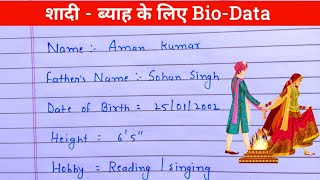 शादी - ब्याह के लिए Bio-Data
Name :- Aman Kumar
Father's Name :- Sohan Singh
Date of Birth = 25/01/2002
Height = 6'5"
Hobby = Reading / singing